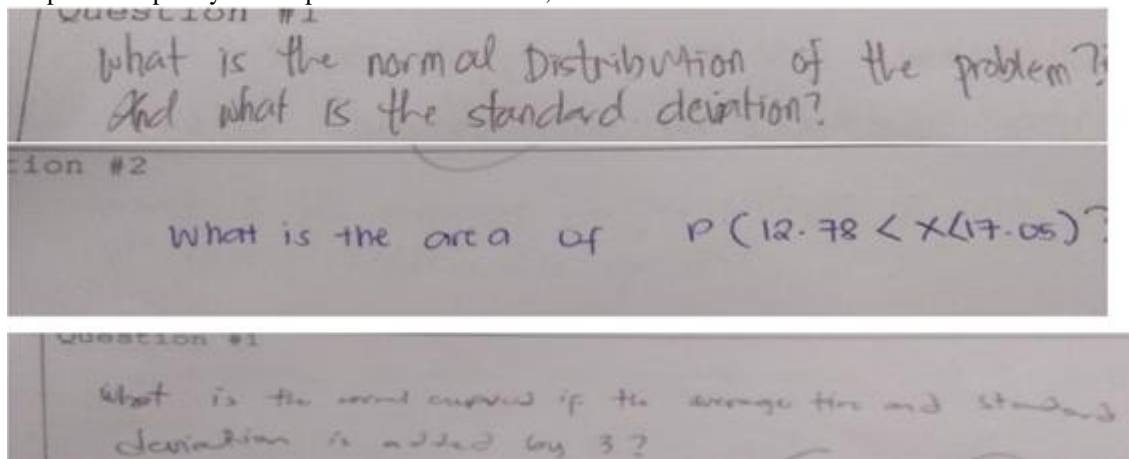 Question #1
What is the normal Distribution of the problem?
And what is the standard deviation?
tion #2
What is the area of P(12.78 < X < 17.05)?
Question #1
What is the normal if the average time and standard
deviation is added by 3?